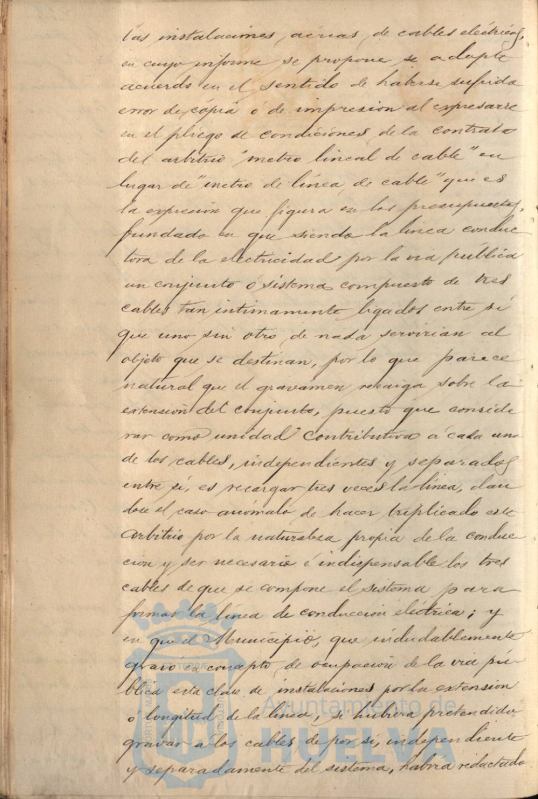 las instalaciones aéreas de cables eléctricos,
en cuyo informe se propone se adopte
acuerdo en el sentido de haberse sufrido
error de copia ó de impresion al expresarse
en el pliego de condiciones de la contrata
del arbitrio "metro lineal de cable" en
lugar de "metro de línea de cable" que es
la expresion que figura en los presupuestos,
fundado en que siendo la línea conduc
tora de la electricidad por la via pública
un conjunto ó sistema compuesto de tres
cables tan intimamente ligados entre sí
que uno sin otro de nada servirian al
objeto que se destinan, por lo que parece
natural que el gravamen recaiga sobre la
extensión del conjunto, puesto que conside
rar como unidad contributiva á cada uno
de los cables, independientes y separados
entre sí, es recargar tres veces la línea, dan
dose el caso anómalo de hacer triplicado este
arbitrio por la naturaleza propia de la conduc
cion y ser necesario é indispensable los tres
cables de que se compone el sistema para
formar la línea de conduccion eléctrica; y
en que el Municipio, que indudablemente
gravó en concepto de ocupacion de la via pú
blica esta clase de instalaciones por la extension
ó longitud de la línea, si hubiera pretendido
gravar á los cables de por sí, independiente
y separadamente del sistema, habria redactado
Ayuntamiento de
HUELVA